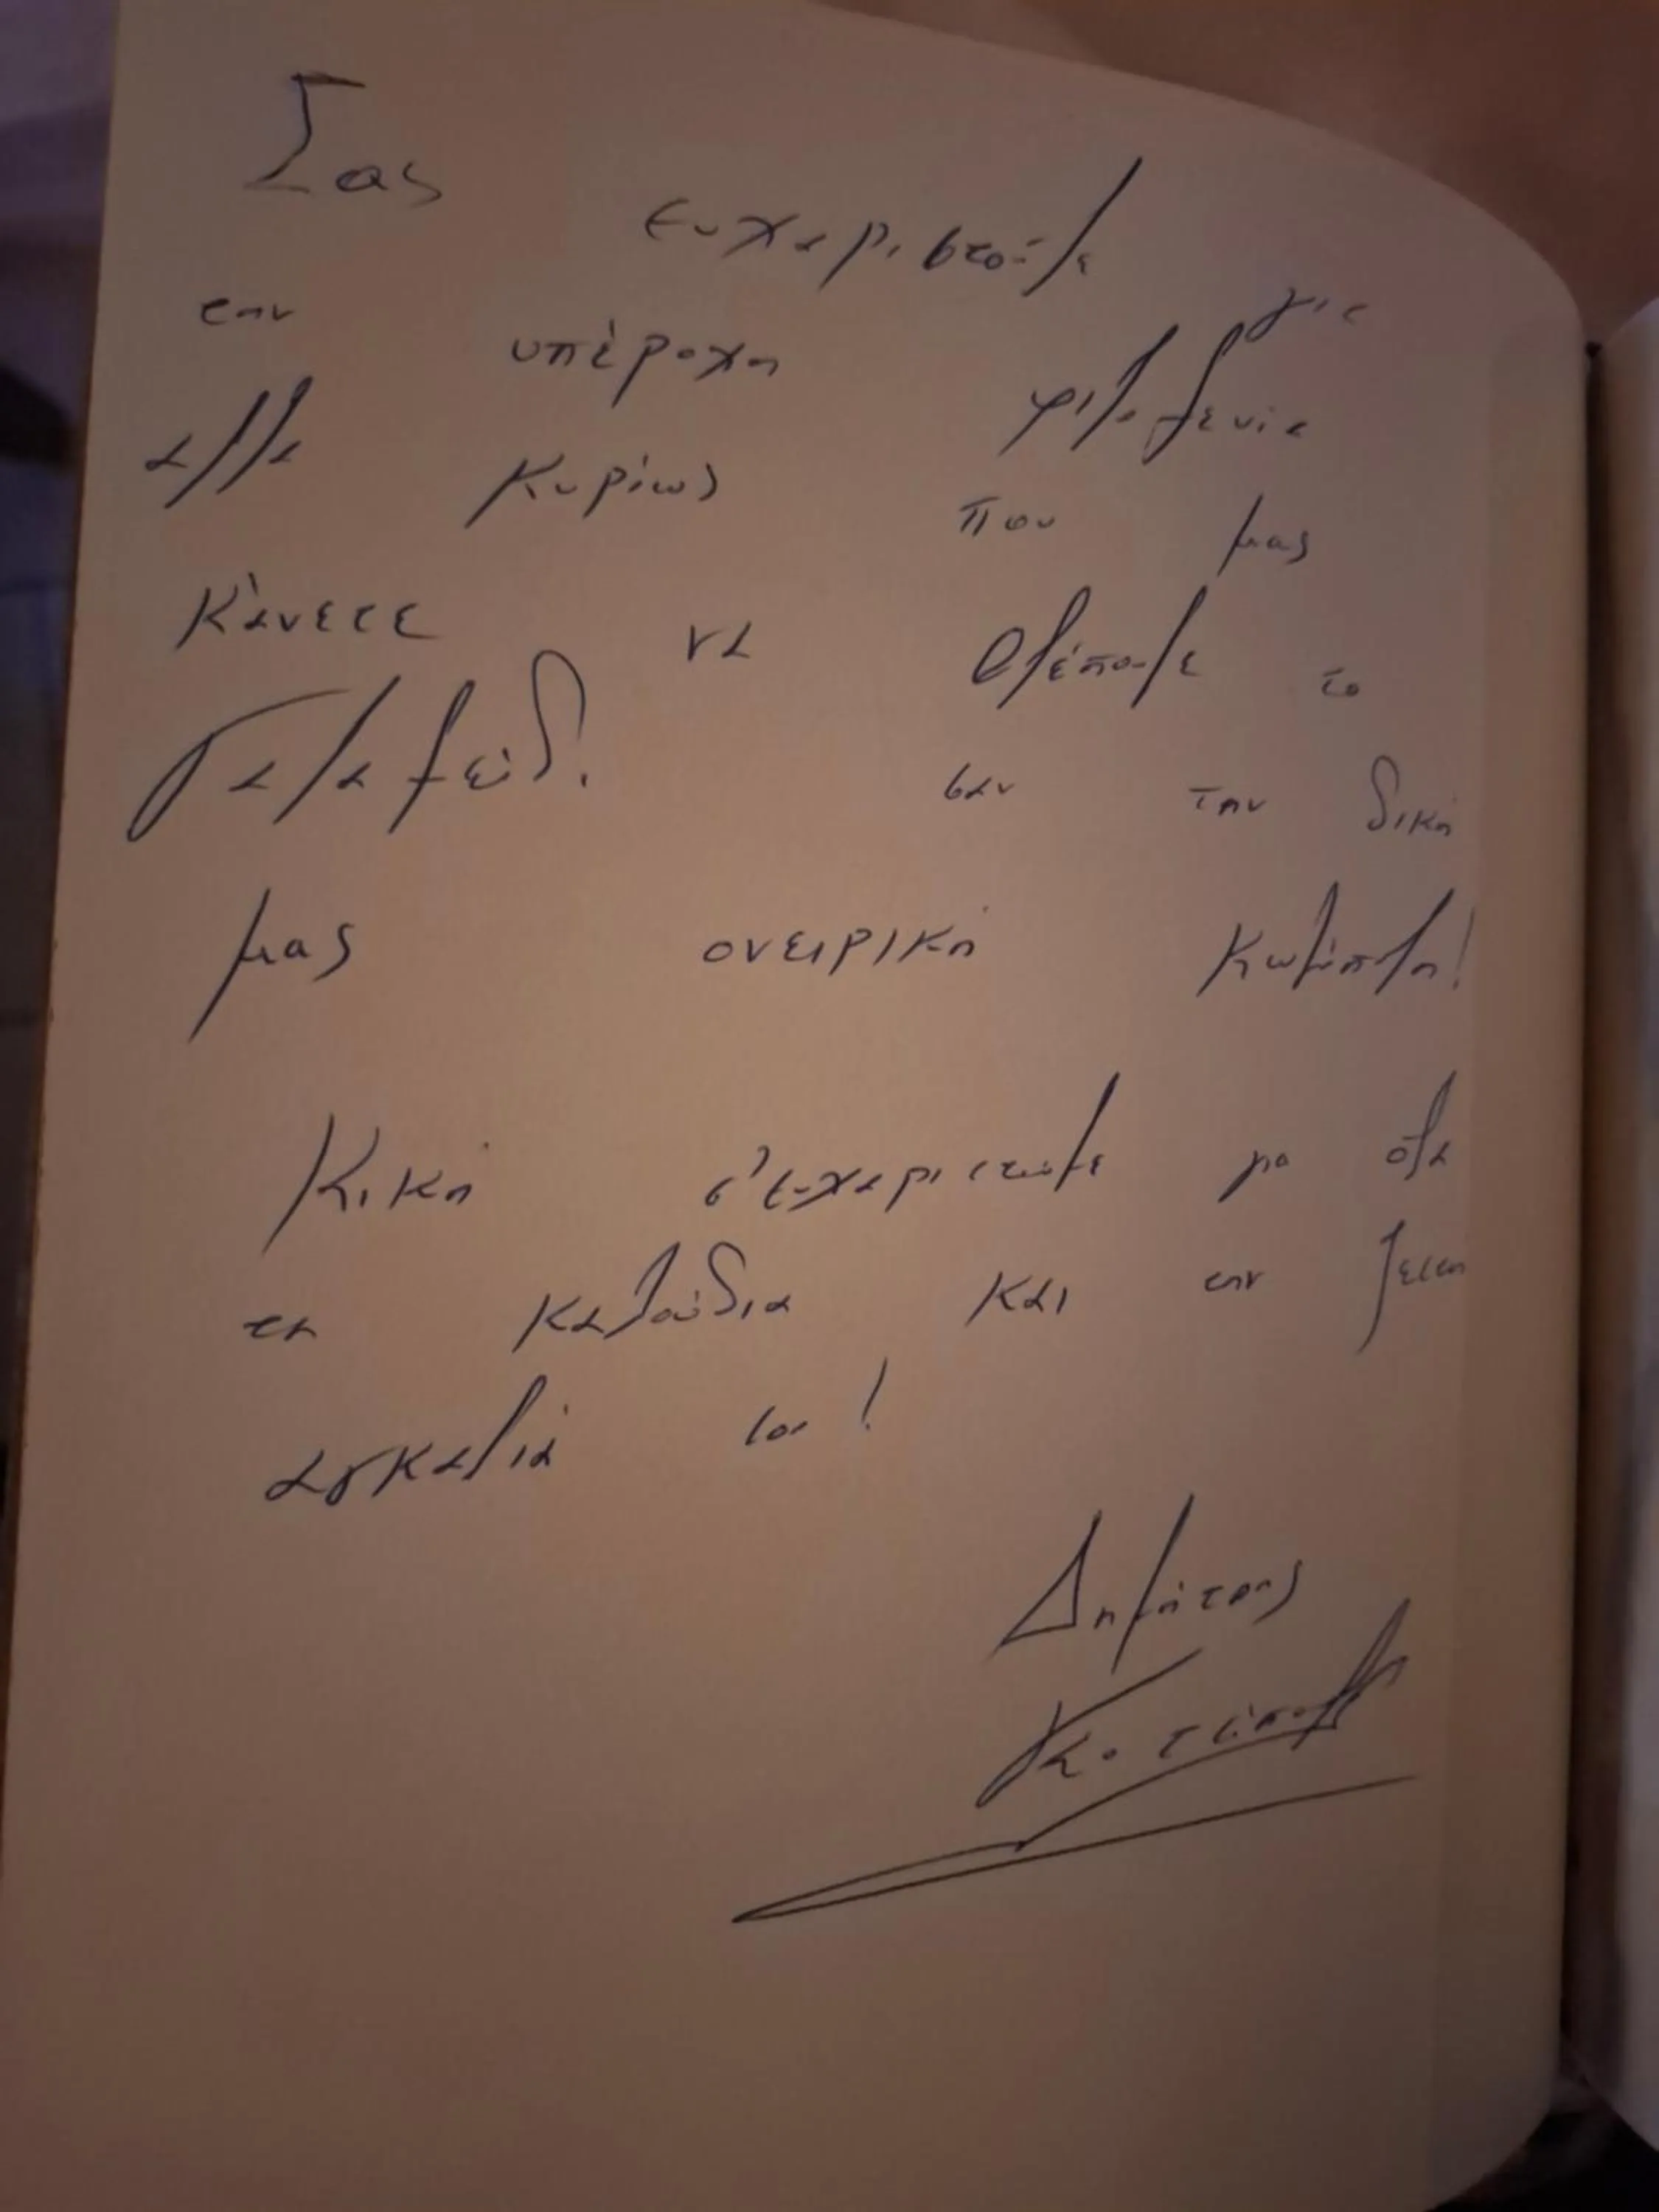 Σας ευχαριστούμε για
την υπέροχη φιλοξενία
αλλα κυρίως που μας
κάνετε να βλέπουμε το
Γαλαξείδι σαν την δική
μας ονειρική κωμόπολη!
Κική σ'ευχαριστούμε για όλα
τα καλούδια και την ζεστή
αγκαλιά σου!
Δημήτρης